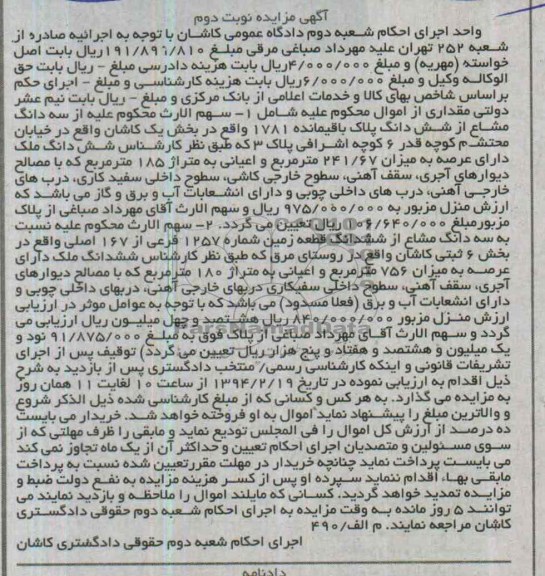 آگهی مزایده نوبت دوم
واحد اجرای احکام شعبه دوم دادگاه عمومی کاشان با توجه به اجرائیه صادره از
شعبه ۲۵۲ تهران علیه مهرداد صباغی مرقی مبلغ ۱۹۱/۸۹۶/۸۱۰ریال بابت اصل
خواسته (مهریه) و مبلغ ۴/۰۰۰/۰۰۰ریال بابت هزینه دادرسی مبلغ - ریال بابت حق
الوکاله وکیل و مبلغ ۶/۰۰۰/۰۰۰ریال بابت هزینه کارشناسی و مبلغ - اجرای حکم
براساس شاخص بهای کالا و خدمات اعلامی از بانک مرکزی و مبلغ - ریال بابت نیم عشر
دولتی مقداری از اموال محکوم علیه شامل ۱- سهم الارث محکوم علیه از سه دانگ
مشاع از شش دانگ پلاک باقیمانده ۱۷۸۱ واقع در بخش یک کاشان واقع در خیابان
محتشم کوچه قدر ۶ کوچه اشراقی پلاک ۳ که طبق نظر کارشناس شش دانگ ملک
دارای عرصه به میزان ۲۴۱/۶۷ مترمربع و اعیانی به متراژ ۱۸۵ مترمربع که با مصالح
دیوارهای آجری، سقف آهنی، سطوح خارجی کاشی، سطوح داخلی سفید کاری، درب های
خارجی آهنی، درب های داخلی چوبی و دارای انشعابات آب و برق و گاز می باشد که
ارزش منزل مزبور به ۹۷۵/۰۰۰/۰۰۰ ریال و سهم الارث آقای مهرداد صباغی از پلاک
مزبورمبلغ ۱۰۶/۶۴۰/۰۰۰ ریال تعیین می گردد. ۲- سهم الارث محکوم علیه نسبت
به سه دانگ مشاع از ششدانگ قطعه زمین شماره ۱۲۵۷ فرعی از ۱۶۷ اصلی واقع در
بخش ۶ ثبتی کاشان واقع در روستای مرق که طبق نظر کارشناس ششدانگ ملک دارای
عرصه به میزان ۷۵۶ مترمربع و اعیانی به متراژ ۱۸۰ مترمربع که با مصالح دیوارهای
آجری، سقف آهنی، سطوح داخلی سفیدکاری دربهای خارجی آهنی، دربهای داخلی چوبی و
دارای انشعابات آب و برق (فعلا مسدود) می باشد که با توجه به عوامل موثر در ارزیابی
ارزش منزل مزبور ۸۴۰/۰۰۰/۰۰۰ ریال هشتصد و چهل میلیون ریال ارزیابی می
گردد و سهم الارث آقای مهرداد صباغی از پلاک فوق به مبلغ ۹۱/۸۷۵/۰۰۰ نود و
یک میلیون و هشتصد و هفتاد و پنج هزار ریال تعیین می گردد) توقیف پس از اجرای
تشریفات قانونی و اینکه کارشناسی رسمی/ منتخب دادگستری پس از بازدید به شرح
ذیل اقدام به ارزیابی نموده در تاریخ ۱۳۹۴/۲/۱۹ از ساعت ۱۰ لغایت ۱۱ همان روز
به مزایده می گذارد. به هر کس و کسانی که از مبلغ کارشناسی شده ذیل الذکر شروع
و والاترین مبلغ را پیشنهاد نماید اموال به او فروخته خواهد شد. خریدار می بایست
ده درصد از ارزش کل اموال را فی المجلس تودیع نماید و مابقی را ظرف مهلتی که از
سوی مسئولین و متصدیان اجرای احکام تعیین و حداکثر آن از یک ماه تجاوز نمی کند
می بایست پرداخت نماید چنانچه خریدار در مهلت مقررتعیین شده نسبت به پرداخت
مابقی بهاء اقدام ننماید سپرده او پس از کسر هزینه مزایده به نفع دولت ضبط و
مزایده تمدید خواهد گردید. کسانی که مایلند اموال را ملاحظه و بازدید نمایند می
توانند ۵ روز مانده به وقت مزایده به اجرای احکام شعبه دوم حقوقی دادگستری
کاشان مراجعه نمایند. م الف/۴۹۰
اجرای احکام شعبه دوم حقوقی دادگستری کاشان
دادنامه